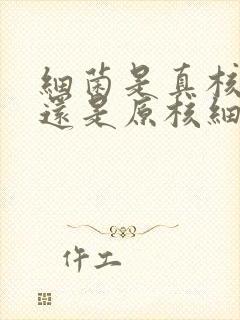 細菌是真核
還是原核細
仵工